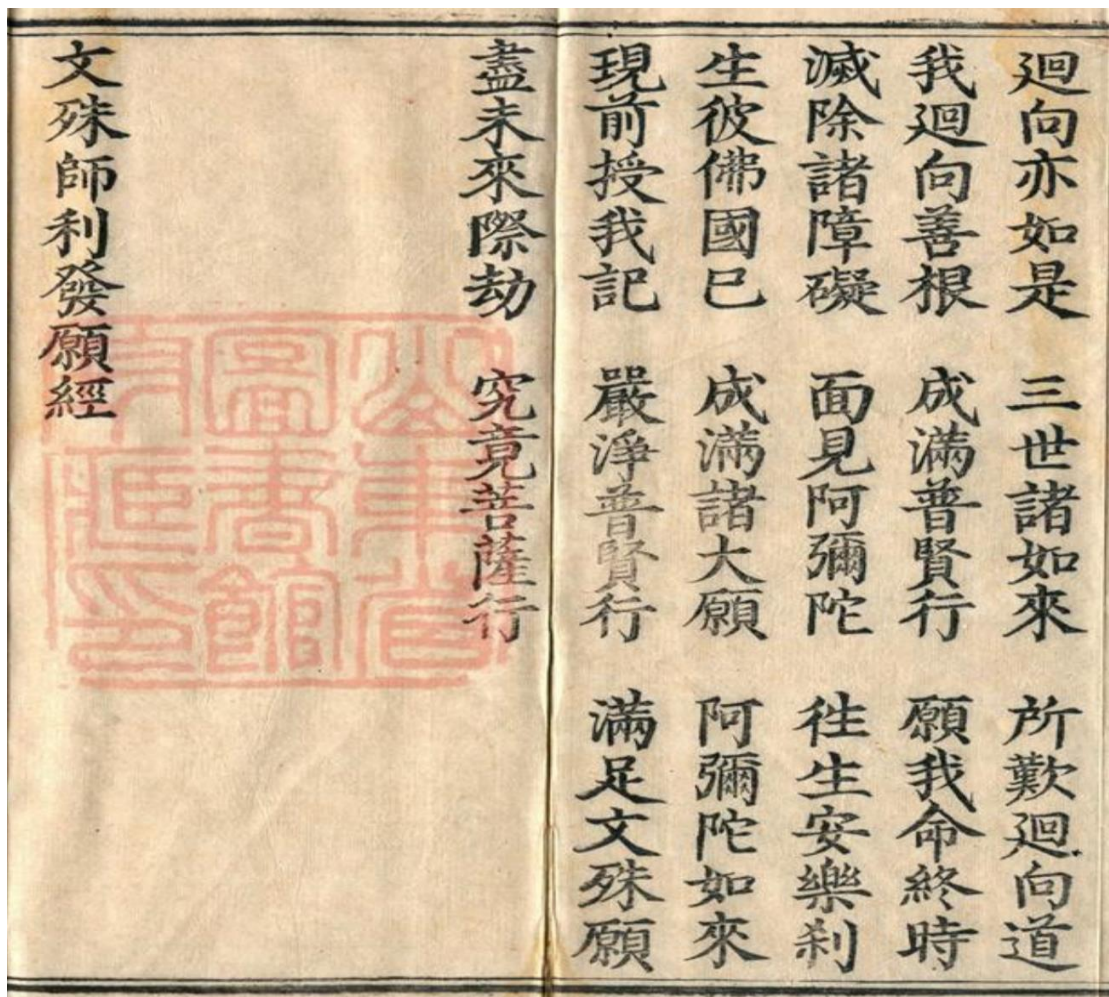 廻向亦如是　三世諸如來　所歎廻向道
我廻向善根　成滿普賢行　願我命終時
滅除諸障礙　面見阿彌陀　徃生安樂刹
生彼佛國已　成滿諸大願　阿彌陀如來
現前授我記　嚴淨普賢行　滿足文殊願
盡未來際劫　究竟菩薩行
文殊師利發願經
宮內省
圖書館